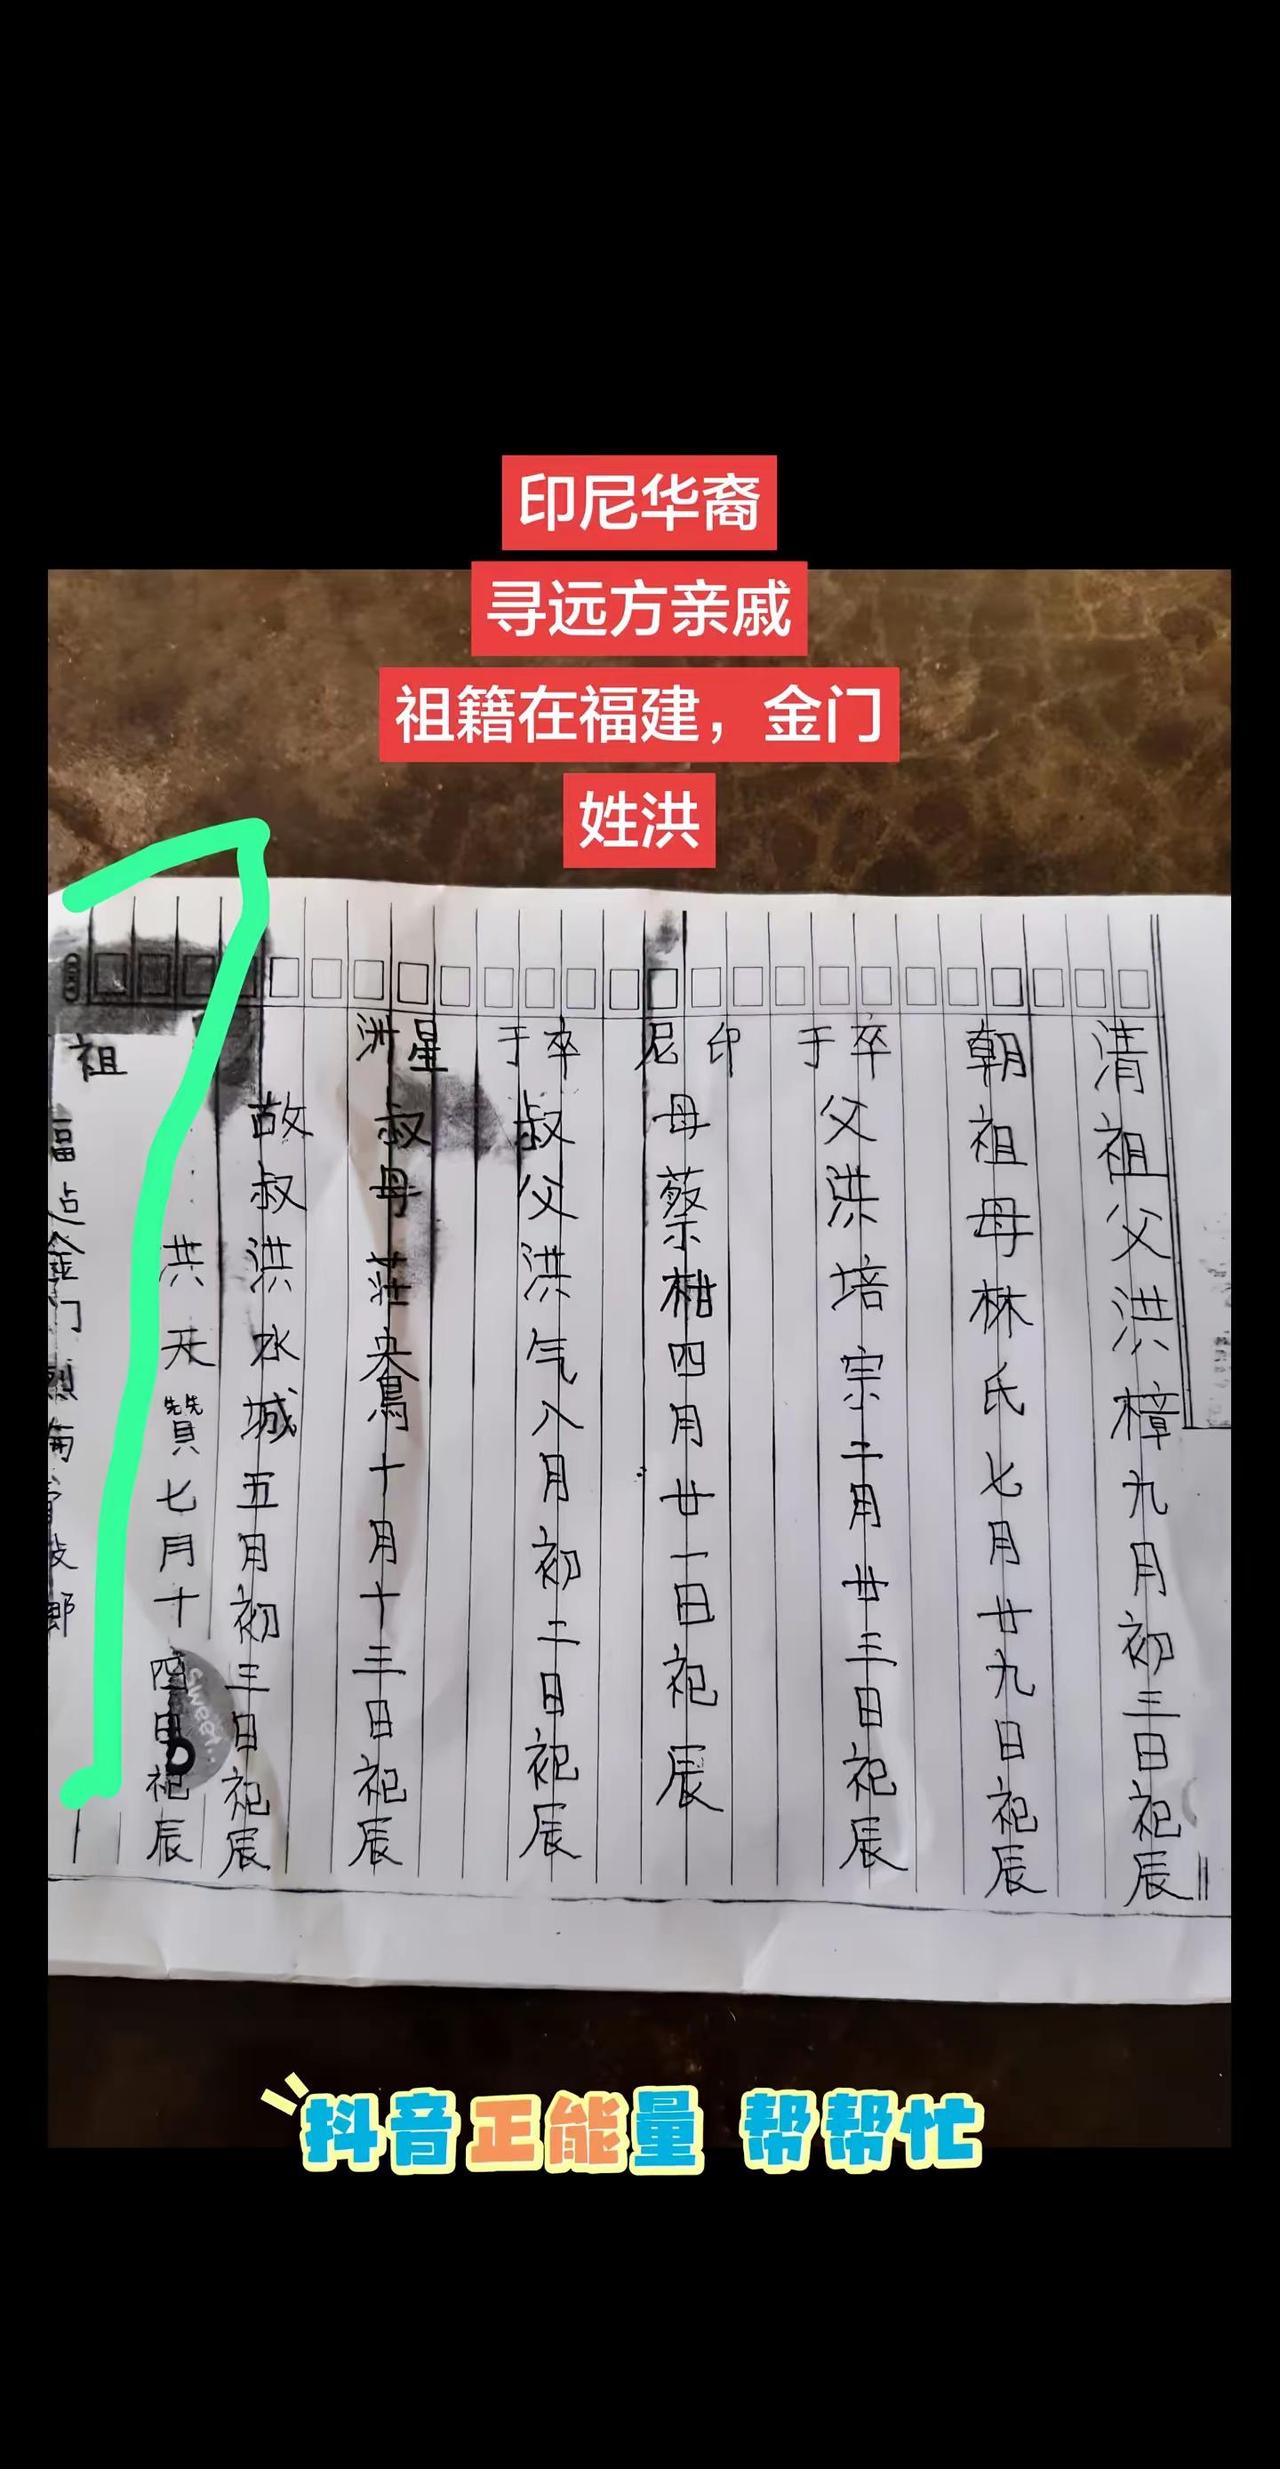 印尼华裔
寻远方亲戚
祖籍在福建，金门
姓洪
清祖父洪樟九月初三日祀辰
朝祖母林氏七月廿九日祀辰
卒于父洪培宗二月廿三日祀辰
印尼母蔡柑四月廿一日祀辰
卒于叔父洪气八月初二日祀辰
星洲叔母莊鴦十月十三日祀辰
故叔洪水城五月初三日祀辰
洪天贊七月十四日祀辰
祖
福金门烈
sweet..
抖音正能量 帮帮忙